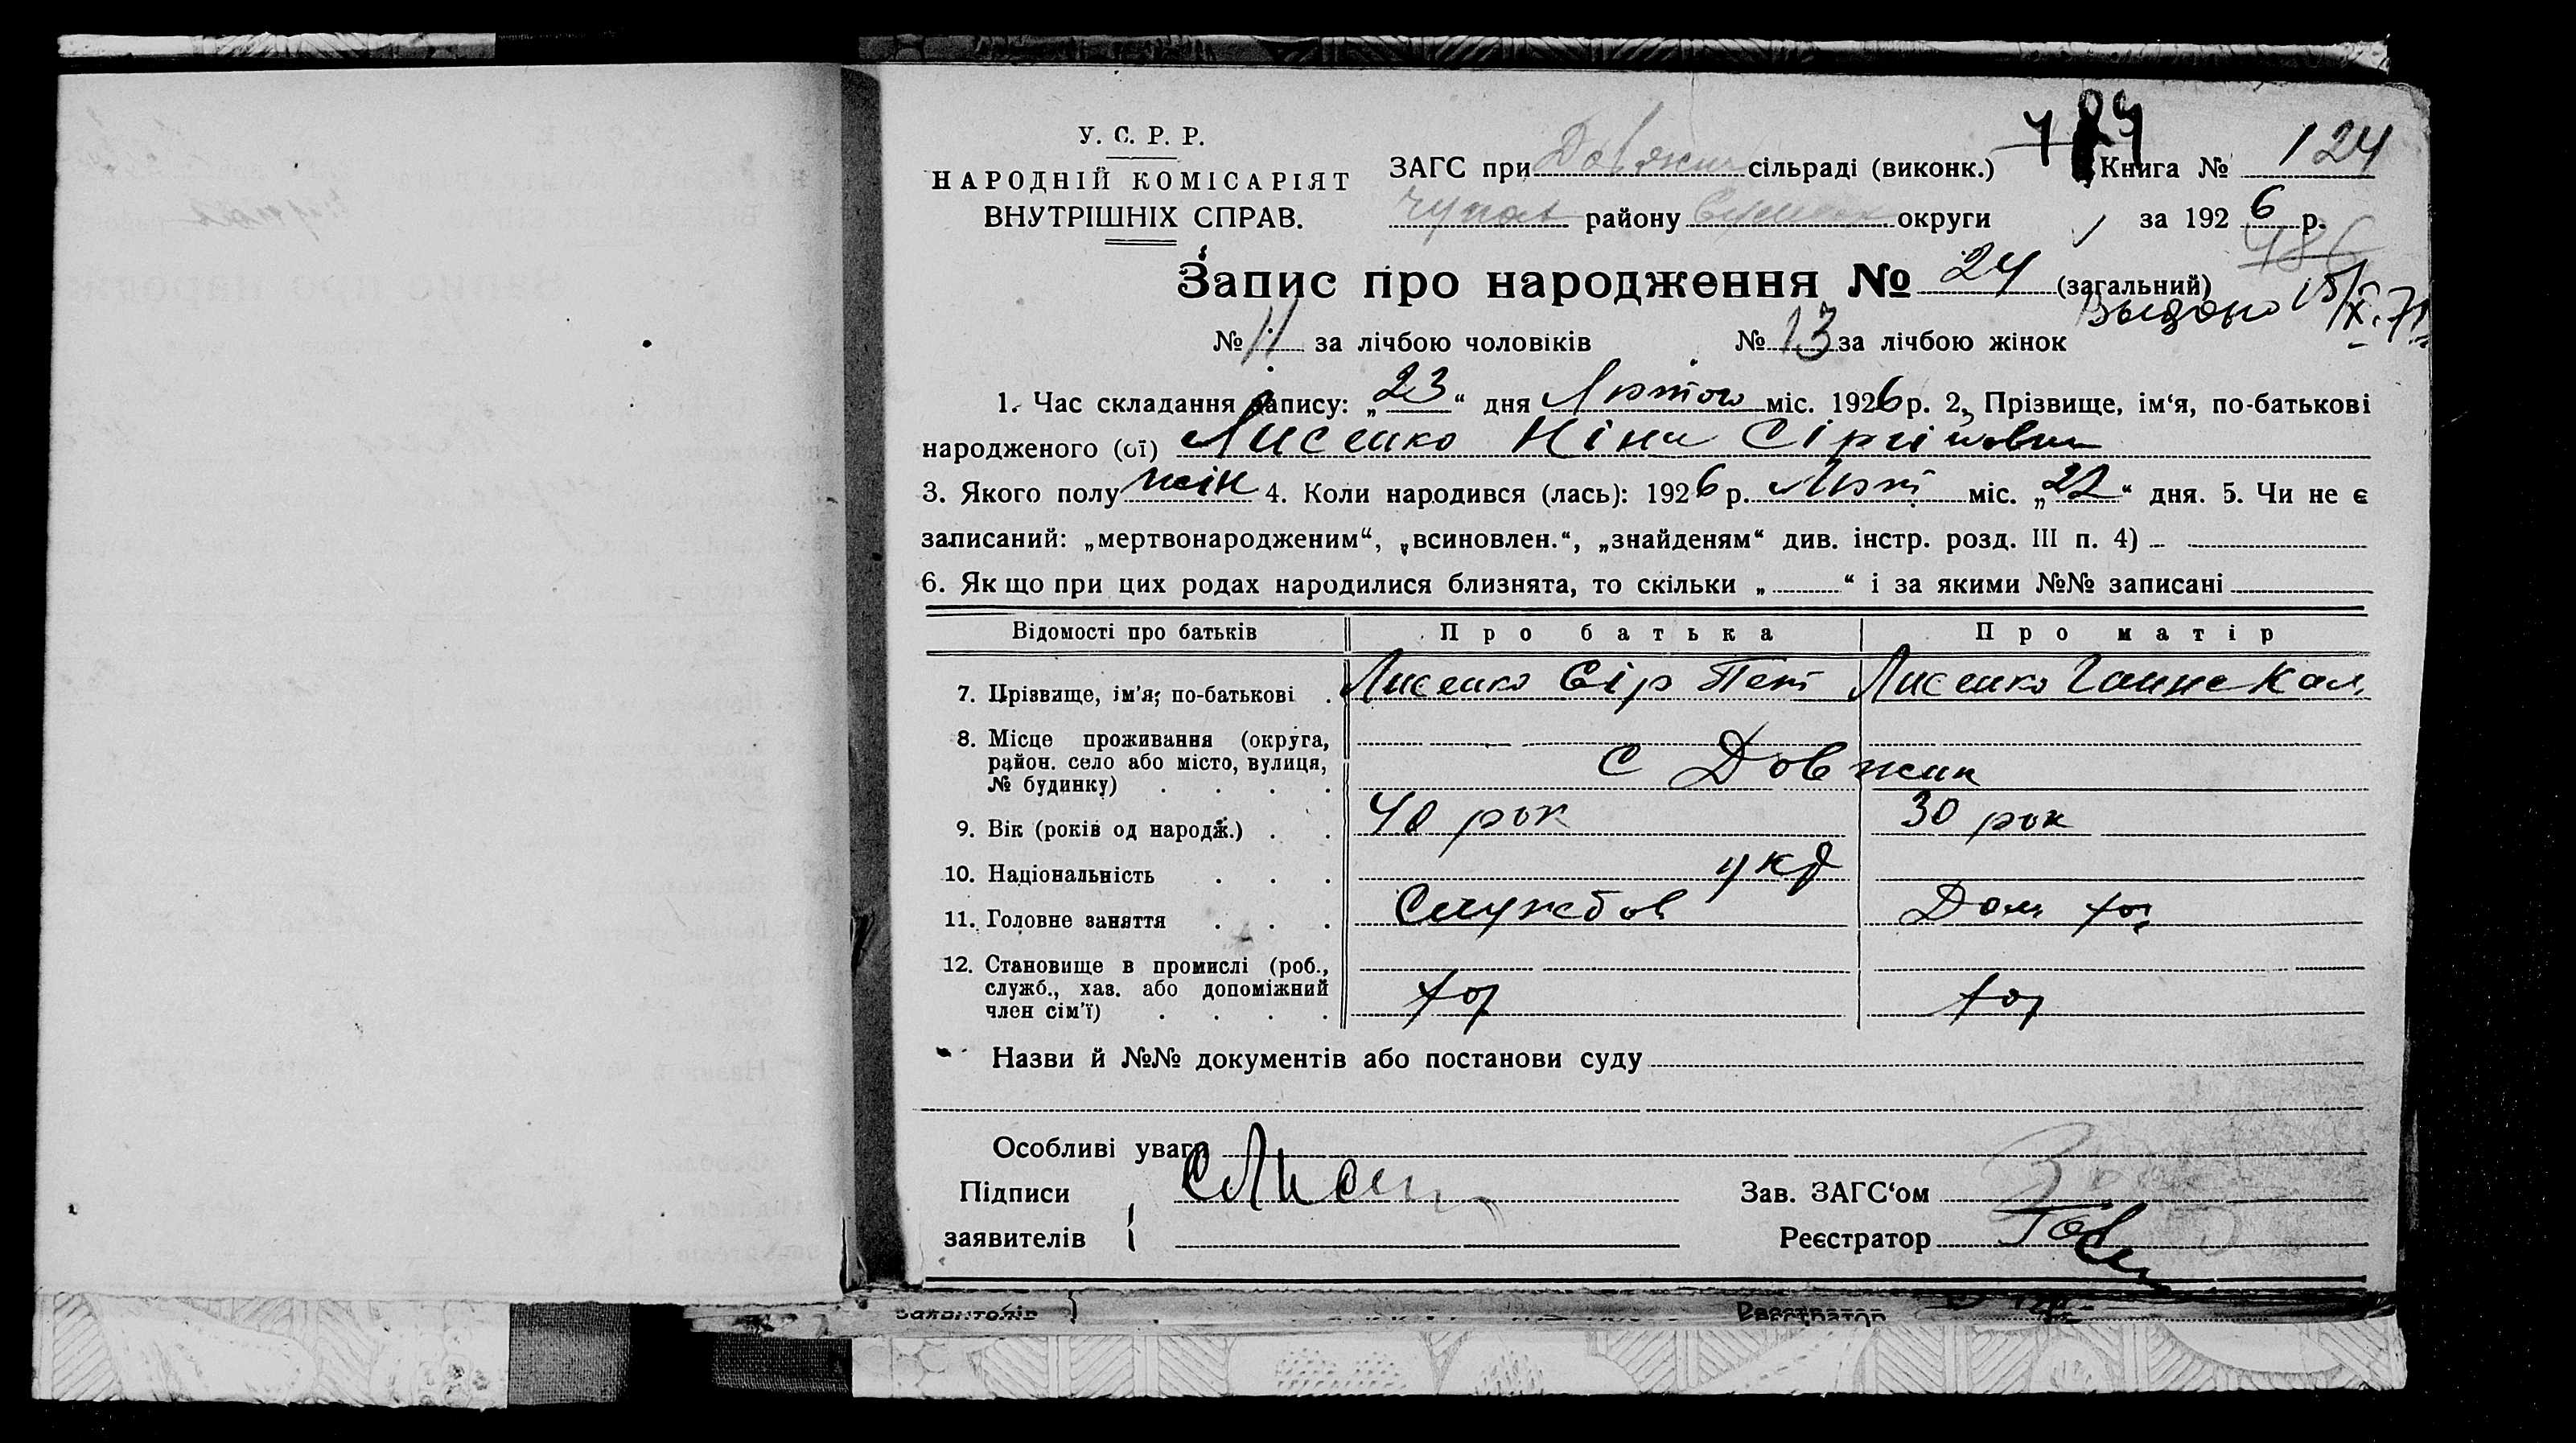 У. С. Р. Р.
НАРОДНІЙ КОМІСАРІЯТ
ВНУТРІШНІХ СПРАВ.
ЗАГС при Довжик сільраді (виконк.)
Книга № 124
Чупах району Сумськ округи
за 1926 р.
486
Запис про народження № 24 (загальний)
Выдано 15/X.71
№ 11 за лічбою чоловіків № 13 за лічбою жінок
1. Час складання запису: „23“ дня Лютого міс. 1926 р. 2. Прізвище, ім‘я, по-батькові
народженого (ої) Лисенко Ніна Сіргіівна
3. Якого полу жін 4. Коли народився (лась): 1926 р. Лют міс. „22“ дня. 5. Чи не є
записаний: „мертвонародженим“, „всиновлен.“, „знайденям“ див. інстр. розд. III п. 4)
6. Як що при цих родах народилися близнята, то скільки „ “ і за якими №№ записані
Відомості про батьків Про батька Про матір
7. Прізвище, ім'я, по-батькові . Лисенко Сір Пет Лисенко Ганна Кал
8. Місце проживання (округа,
район. село або місто, вулиця,
№ будинку) . . . . с Довжик
9. Вік (років од народж.) . . 40 рок 30 рок
10. Національність . . . укр
11. Головне заняття . . . Службов Дом хоз
12. Становище в промислі (роб.,
служб., хаз. або допоміжний
член сім'ї) . . . . хоз хоз
Назви й №№ документів або постанови суду
Особливі уваги
Підписи
заявителів
СЛисен
Зав. ЗАГС‘ом
Реєстратор
заявителів
Реєстратор